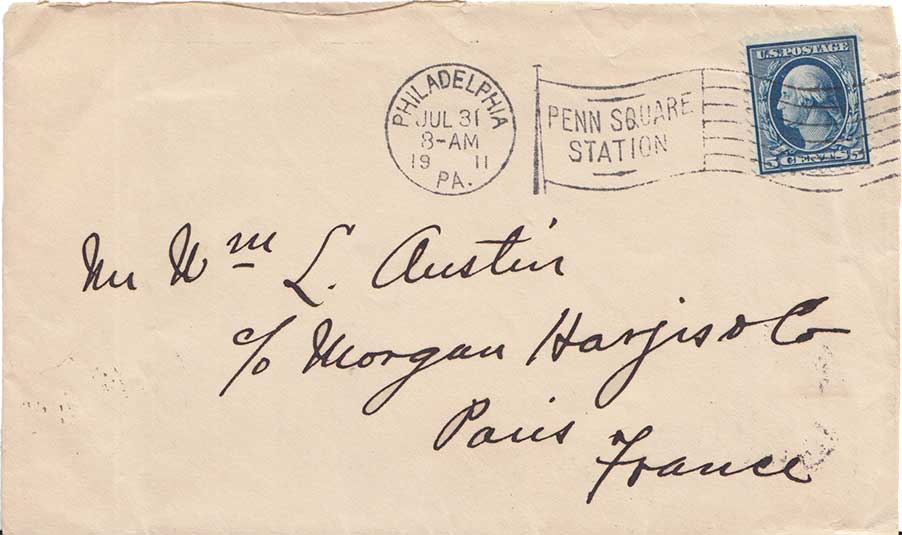 PHILADELPHIA
JUL 31
8-AM
19 11
PA.
PENN SQUARE
STATION
U.S. POSTAGE
5 CENTS 5
Mr Wm L. Austin
c/o Morgan Harjis & Co
Paris
France